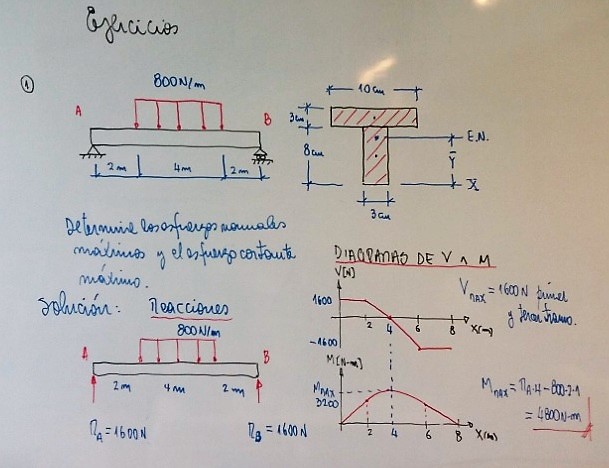 Ejercicios
①
800N/m
A
B
2m
4m
2m
10cm
3cm
8cm
E.N.
Ȳ
X̄
3cm
Determine los esfuerzos normales
máximos y el esfuerzo cortante
máximo.
Solución: Reacciones
800N/m
A
B
2m
4m
2m
RA = 1600N
RB = 1600N
DIAGRAMAS DE V ∧ M
V[N]
1600
-1600
2
4
6
8
X(m)
VMAX = 1600N primer
y tercer tramo.
M[N-m]
MMAX
3200
2
4
6
8
X(m)
MMAX = RA·4 - 800·2·1
= 4800N-m